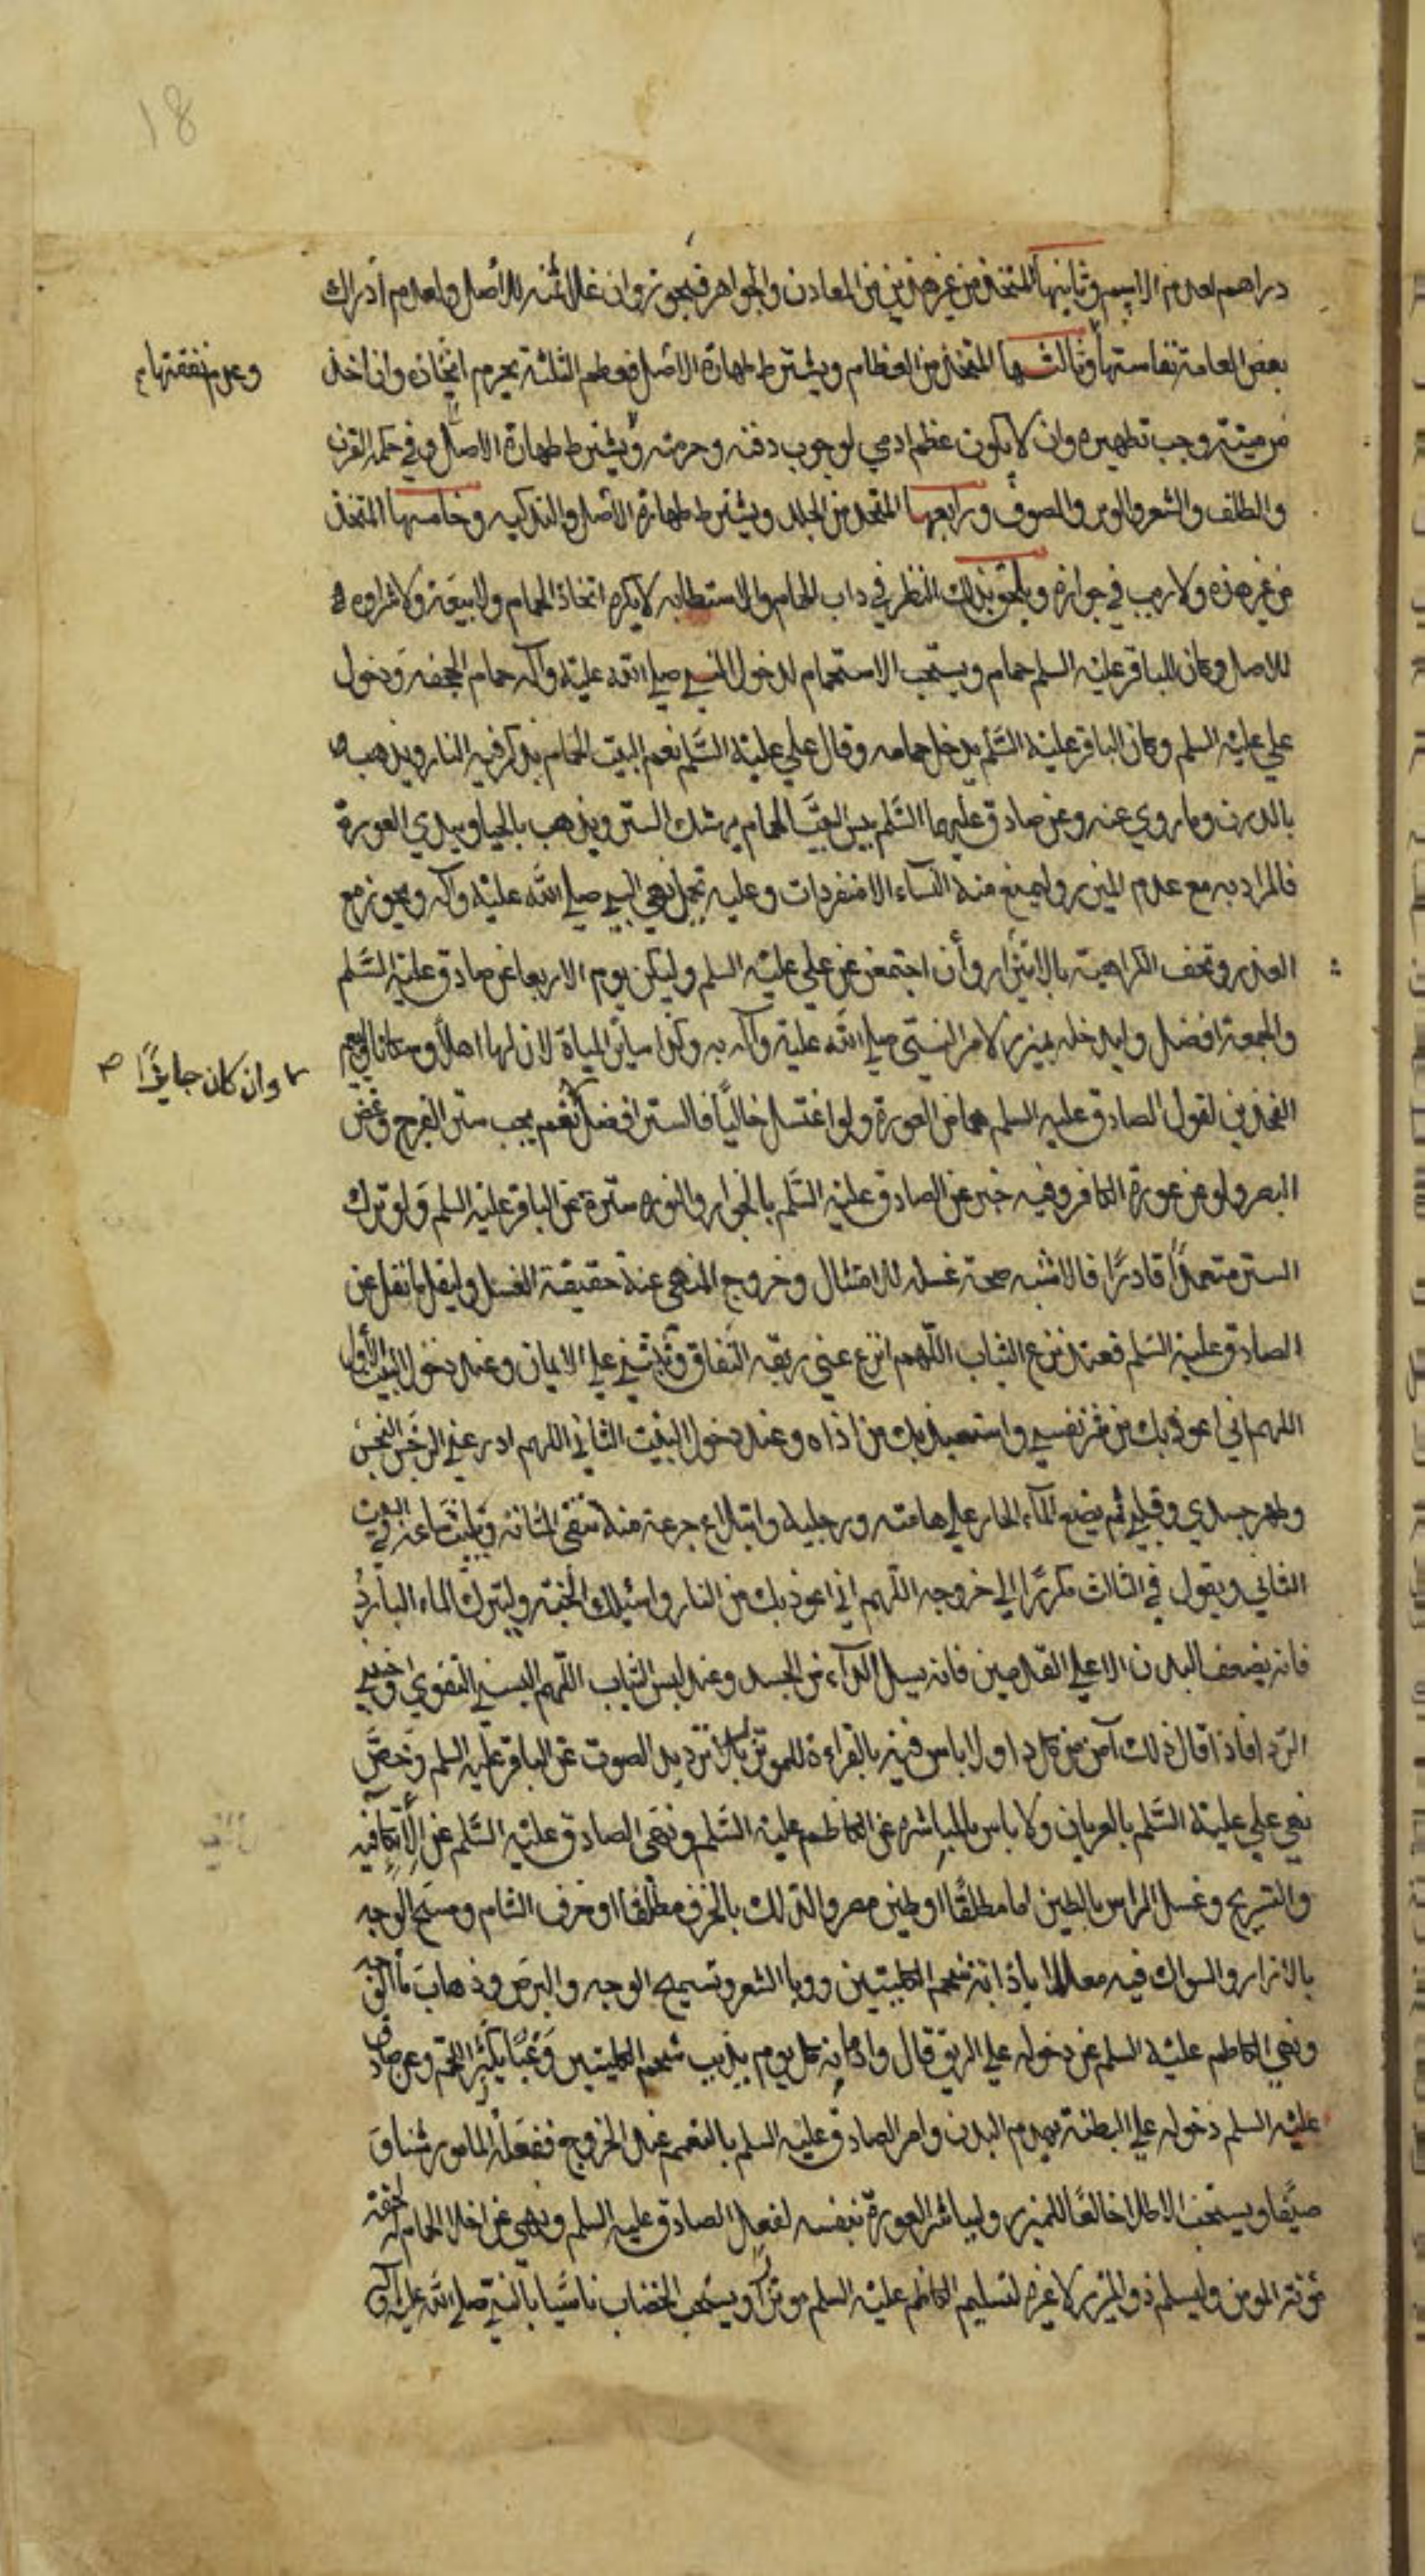 18
دراهم لعدم الاسم وثانيها المتخذ من غير هذين من المعادن والجواهر فيجوز وان غلا ثمنه للاصل ولعدم ادراك
بعض العامة نفاستها وثالثها المتخذ من العظام ويشترط طهارة الاصل فعظم الثلثة يحرم اتخاذه وان اخذ
وعدم نفقتها
من ميتة وجب تطهيره وان لا يكون عظم ادمي لوجوب دفنه وحرمته ويشترط طهارة الاصل وفي حكمه القرن
والظلف والشعر والوبر والصوف ورابعها المتخذ من الجلد ويشترط طهارة الاصل والتذكيه وخامسها المتخذ
من غير هذه ولا ريب في جوازه ويلحق بذلك النظر في داب الحمام والاستطابه لا يكره اتخاذ الحمام ولا بيعه ولا شراوه
للاصل وكان للباقر عليه السلم حمام ويستحب الاستحمام لدخول النبي صلي الله عليه وآله حمام الجحفه ودخول
علي عليه السلم وكان الباقر عليه السلم يدخل حمامه وقال علي عليه السلم نعم البيت الحمام يذكر فيه النار ويذهب
بالدرن وما روي عنه وعن صادق عليهما السلم بيس البيت الحمام يهتك الستر ويذهب بالحيا ويبدي العورة
فالمراد به مع عدم الميزر وليمنع منه النساء الا منفردات وعليه تحمل نهي النبي صلي الله عليه وآله ويجوز مع
العذر وتخف الكراهية بالايتزار وأن اجتمعن عن علي عليه السلم وليكن يوم الاربعا عن صادق عليه السلم
والجمعة افضل وليدخله بميزر لامر النبي صلي الله عليه وآله به وكذا ساير المياة لان لها اهلا وسكانا وليعم
وان كان جايزًا صح
الفخذين لقول الصادق عليه السلم هما من العورة ولو اغتسل خاليًا فالستر افضل نعم يجب ستر الفرج وغض
البصر ولو عن عورة الكافر وفيه خبر عن الصادق عليه السلم بالجواز والنوره سترة عن الباقر عليه السلم ولو ترك
الستر متعمدًا قادرًا فالاشبه صحة غسله للامتثال وخروج المنهي عنه حقيقة الغسل وليقل ما نقل عن
الصادق عليه السلم فعند نزع الثياب اللهم انزع عني ربقه النفاق وثبتني علي الايمان وعند دخول البيت الأول
اللهم اني اعوذ بك من شر نفسي واستعيذ بك من اذاه وعند دخول البيت الثاني اللهم اذهب عني الرجس النجس
وطهر جسدي وقلبي ثم يضع الماء الحار علي هامته ورجليه وابتلاع جرعة منه تنقي المثانه ويلبث ساعة في البيت
الثاني ويقول في الثالث مكررًا الي خروجه اللهم اني اعوذ بك من النار واسئلك الجنه وليترك الماء البارد
فانه يضعف البدن الا علي القدمين فانه يسل الداء من الجسد وعند لبس الثياب اللهم البسني التقوي وجنبني
الردا فاذا قال ذلك آمن من كل داو لا باس فيه بالقراءة للموتزر بلا ترديد الصوت عن الباقر عليه السلم وخص
نهي علي عليه السلم بالعريان ولا باس بالمباشره عن الكاظم عليه السلم ونهي الصادق عليه السلم عن الاتكا فيه
والتسريح وغسل الراس بالطين اما مطلقًا او طين مصر والتدلك بالخزف مطلقًا او خزف الشام ومسح الوجه
بالازار والسواك فيه معللا باذابة شحم الكليتين ووبا الشعر وتسميج الوجه والبرص وذهاب ما الوجه
ونهي الكاظم عليه السلم عن دخوله علي الريق قال وادمانه كل يوم يذيب شحم الكليتين وغبًا يكثر اللحم وعن صادق
عليه السلم دخوله علي البطنة يهدم البدن وامر الصادق عليه السلم بالتعمم عند الخروج ففعله المامور شتا و
صيفًا ويستحب الاطلا خالعًا للميزر وليباشر العورة بنفسه لفعل الصادق عليه السلم ونهي عن اخلا الحمام له لخفة
مؤنة المومن وليسلم ذو الميزر لا غيره لتسليم الكاظم عليه السلم موتزرا ويستحب الخضاب تاسيًا بالنبي صلي الله عليه وآله